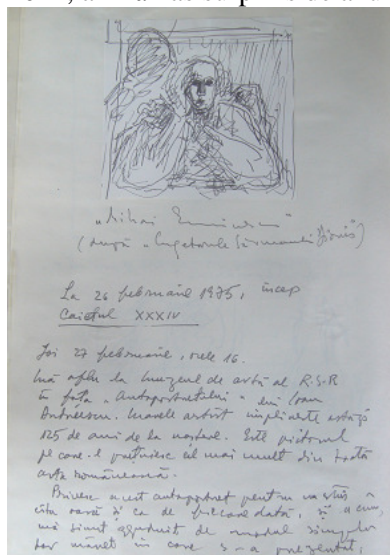 „Mihai Eminescu”
(după „Cugetările Sărmanului Dionis”)
La 26 februarie 1975, încep
Caietul XXXIV
Joi 27 februarie, orele 16.
Mă aflu la Muzeul de artă al R.S.R
în fața „Autoportretului” lui Ioan
Andreescu. Marele artist împlinește astăzi
125 de ani de la naștere. Este pictorul
pe care-l prețuiesc cel mai mult din toată
arta românească.
Privesc acest autoportret pentru nu știu a
câta oară și ca de fiecare dată, și acum,
mă simt de modul simplu
dar măreț în care s-a prezentat,